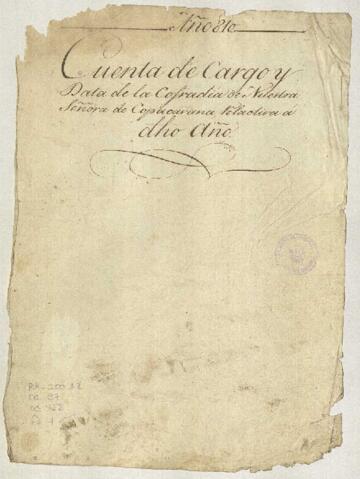 Año 810
Cuenta de Cargo y
Data de la Cofradia de Nuestra
Señora de Copacavana Relativa á
dho Año